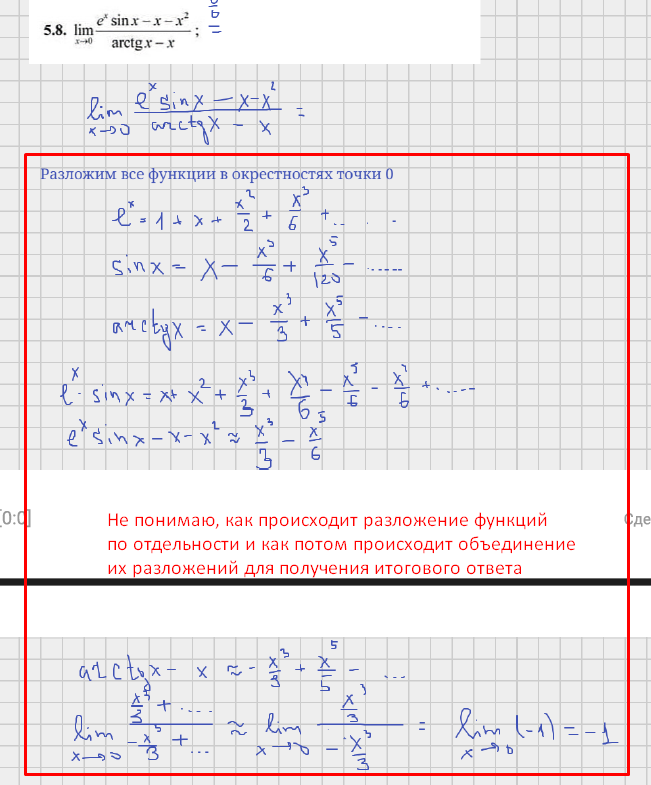 5.8. lim x→0 (e^x sin x − x − x²)/(arctg x − x) ;
lim x→0 (e^x sin x − x − x²)/(arctg x − x) =
Разложим все функции в окрестностях точки 0
e^x = 1 + x + x²/2 + x³/6 + ...
sin x = x − x³/6 + x⁵/120 − .....
arctg x = x − x³/3 + x⁵/5 − ....
e^x · sin x = x + x² + x³/3 +
e^x sin x − x − x² ≈ x³/3 − x⁵/6
[0:0]
Сде
Не понимаю, как происходит разложение функций
по отдельности и как потом происходит объединение
их разложений для получения итогового ответа
arctg x − x ≈ − x³/3 + x⁵/5 − ...
lim x→0 (x³/3 + ....)/(−x³/3 + ...) ≈ lim x→0 (x³/3)/(−x³/3) = lim x→0 (−1) = −1